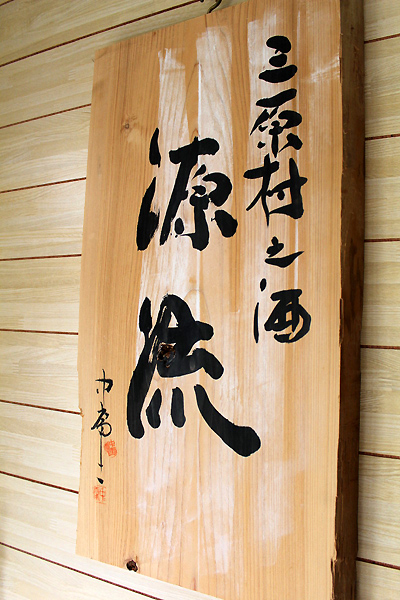 三原村之酒
源流